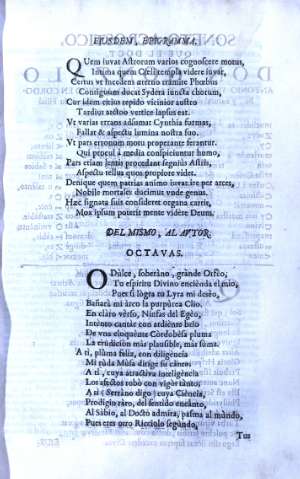 EIUSDEM, EPIGRAMMA.
QUem iuvat Astrorum varios cognoscere motus,
Intima quem Cæli templa videre iuvat,
Certus ut hæc dem æterno tramite Phœbus
Contiguum ducat Sydera iuncta chorum,
Cur idem citius rapido vicinior austro
Tardius arctoo vertice lapsus eat.
Ut varias errans assumat Cynthia formas,
Fallat & aspectu lumina nostra suo.
Ut pars errorum motu properante ferantur.
Qui procul à media conspiciuntur humo,
Pars etiam lentis procedant segnius Astris,
Aspectu tellus quos propiore videt.
Denique quem patrias animo lustrare per arces,
Nobile mortalis ducimus unde genus.
Hæc signata suis consideret organa cartis,
Mox ipsum poterit mente videre Deum.
DEL MISMO, AL AUTOR.
OCTAVAS.
O Dulce, soberàno, grànde Orfèo,
Tu espiritu Divino encienda el mio,
Pues si logra tu Lyra mi desèo,
Bañarà mi àrco la purpùrea Clio.
En clàro vèrso, Ninfas del Egèo,
Intento cantàr con ardiènte brio
De vna eloquente Còrdobèsa pluma
La erudicion màs plausible, màs suma.
A ti, plùma felìz, con diligència
Mi rùda Mùsa dirige su càrrera
A ti, cuya atractiva inteligència
Los afectos robò con vigòr tanto,
A ti (Serràno digo) cuya Ciència,
Prodigio ràro, del sentido encanto,
Al Sàbio, al Docto admira, pasma al mùndo,
Pues eres otro Ricciolo segùndo,
Tus